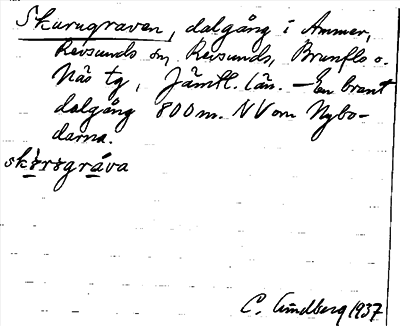 Skurugraven, dalgång i Ammer,
Revsunds sn, Revsunds, Brunflo o.
Näs tg, Jämtl. län. — En brant
dalgång 800 m. NV om Nybo-
darna.
skərsgráva
C. Lindberg 1937